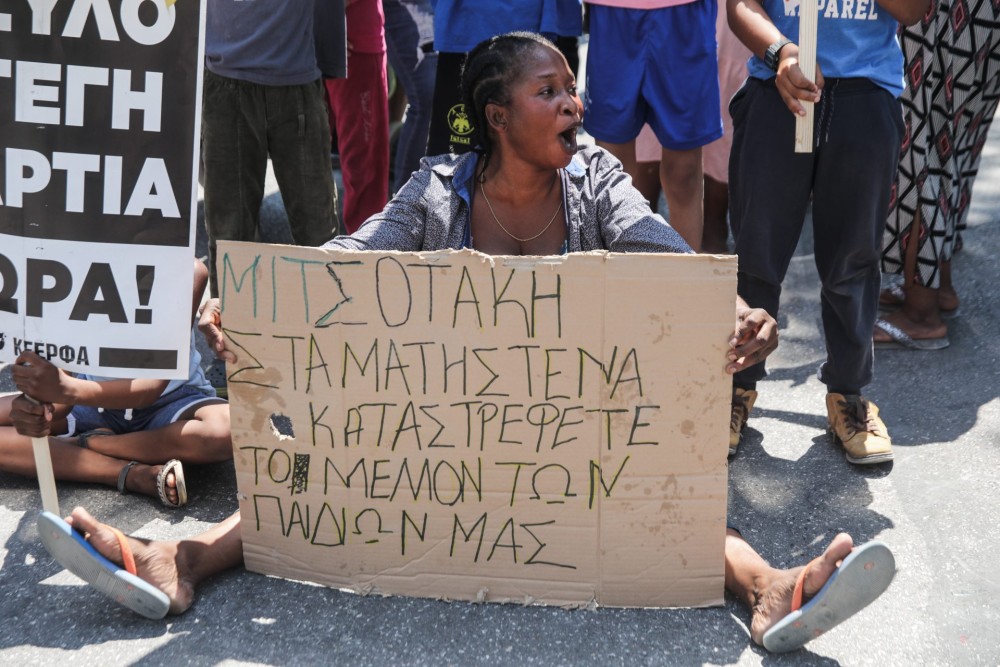 ΣΥΛΟ
ΤΕΓΗ
ΑΡΤΙΑ
ΩΡΑ!
ΚΕΕΡΦΑ
APPAREL
ΜΙΤΣΟΤΑΚΗ
ΣΤΑΜΑΤΗΣΤΕ ΝΑ
ΚΑΤΑΣΤΡΕΦΕΤΕ
ΤΟ ΜΕΜΟΝ ΤΩΝ
ΠΑΙΔΙΩΝ ΜΑΣ